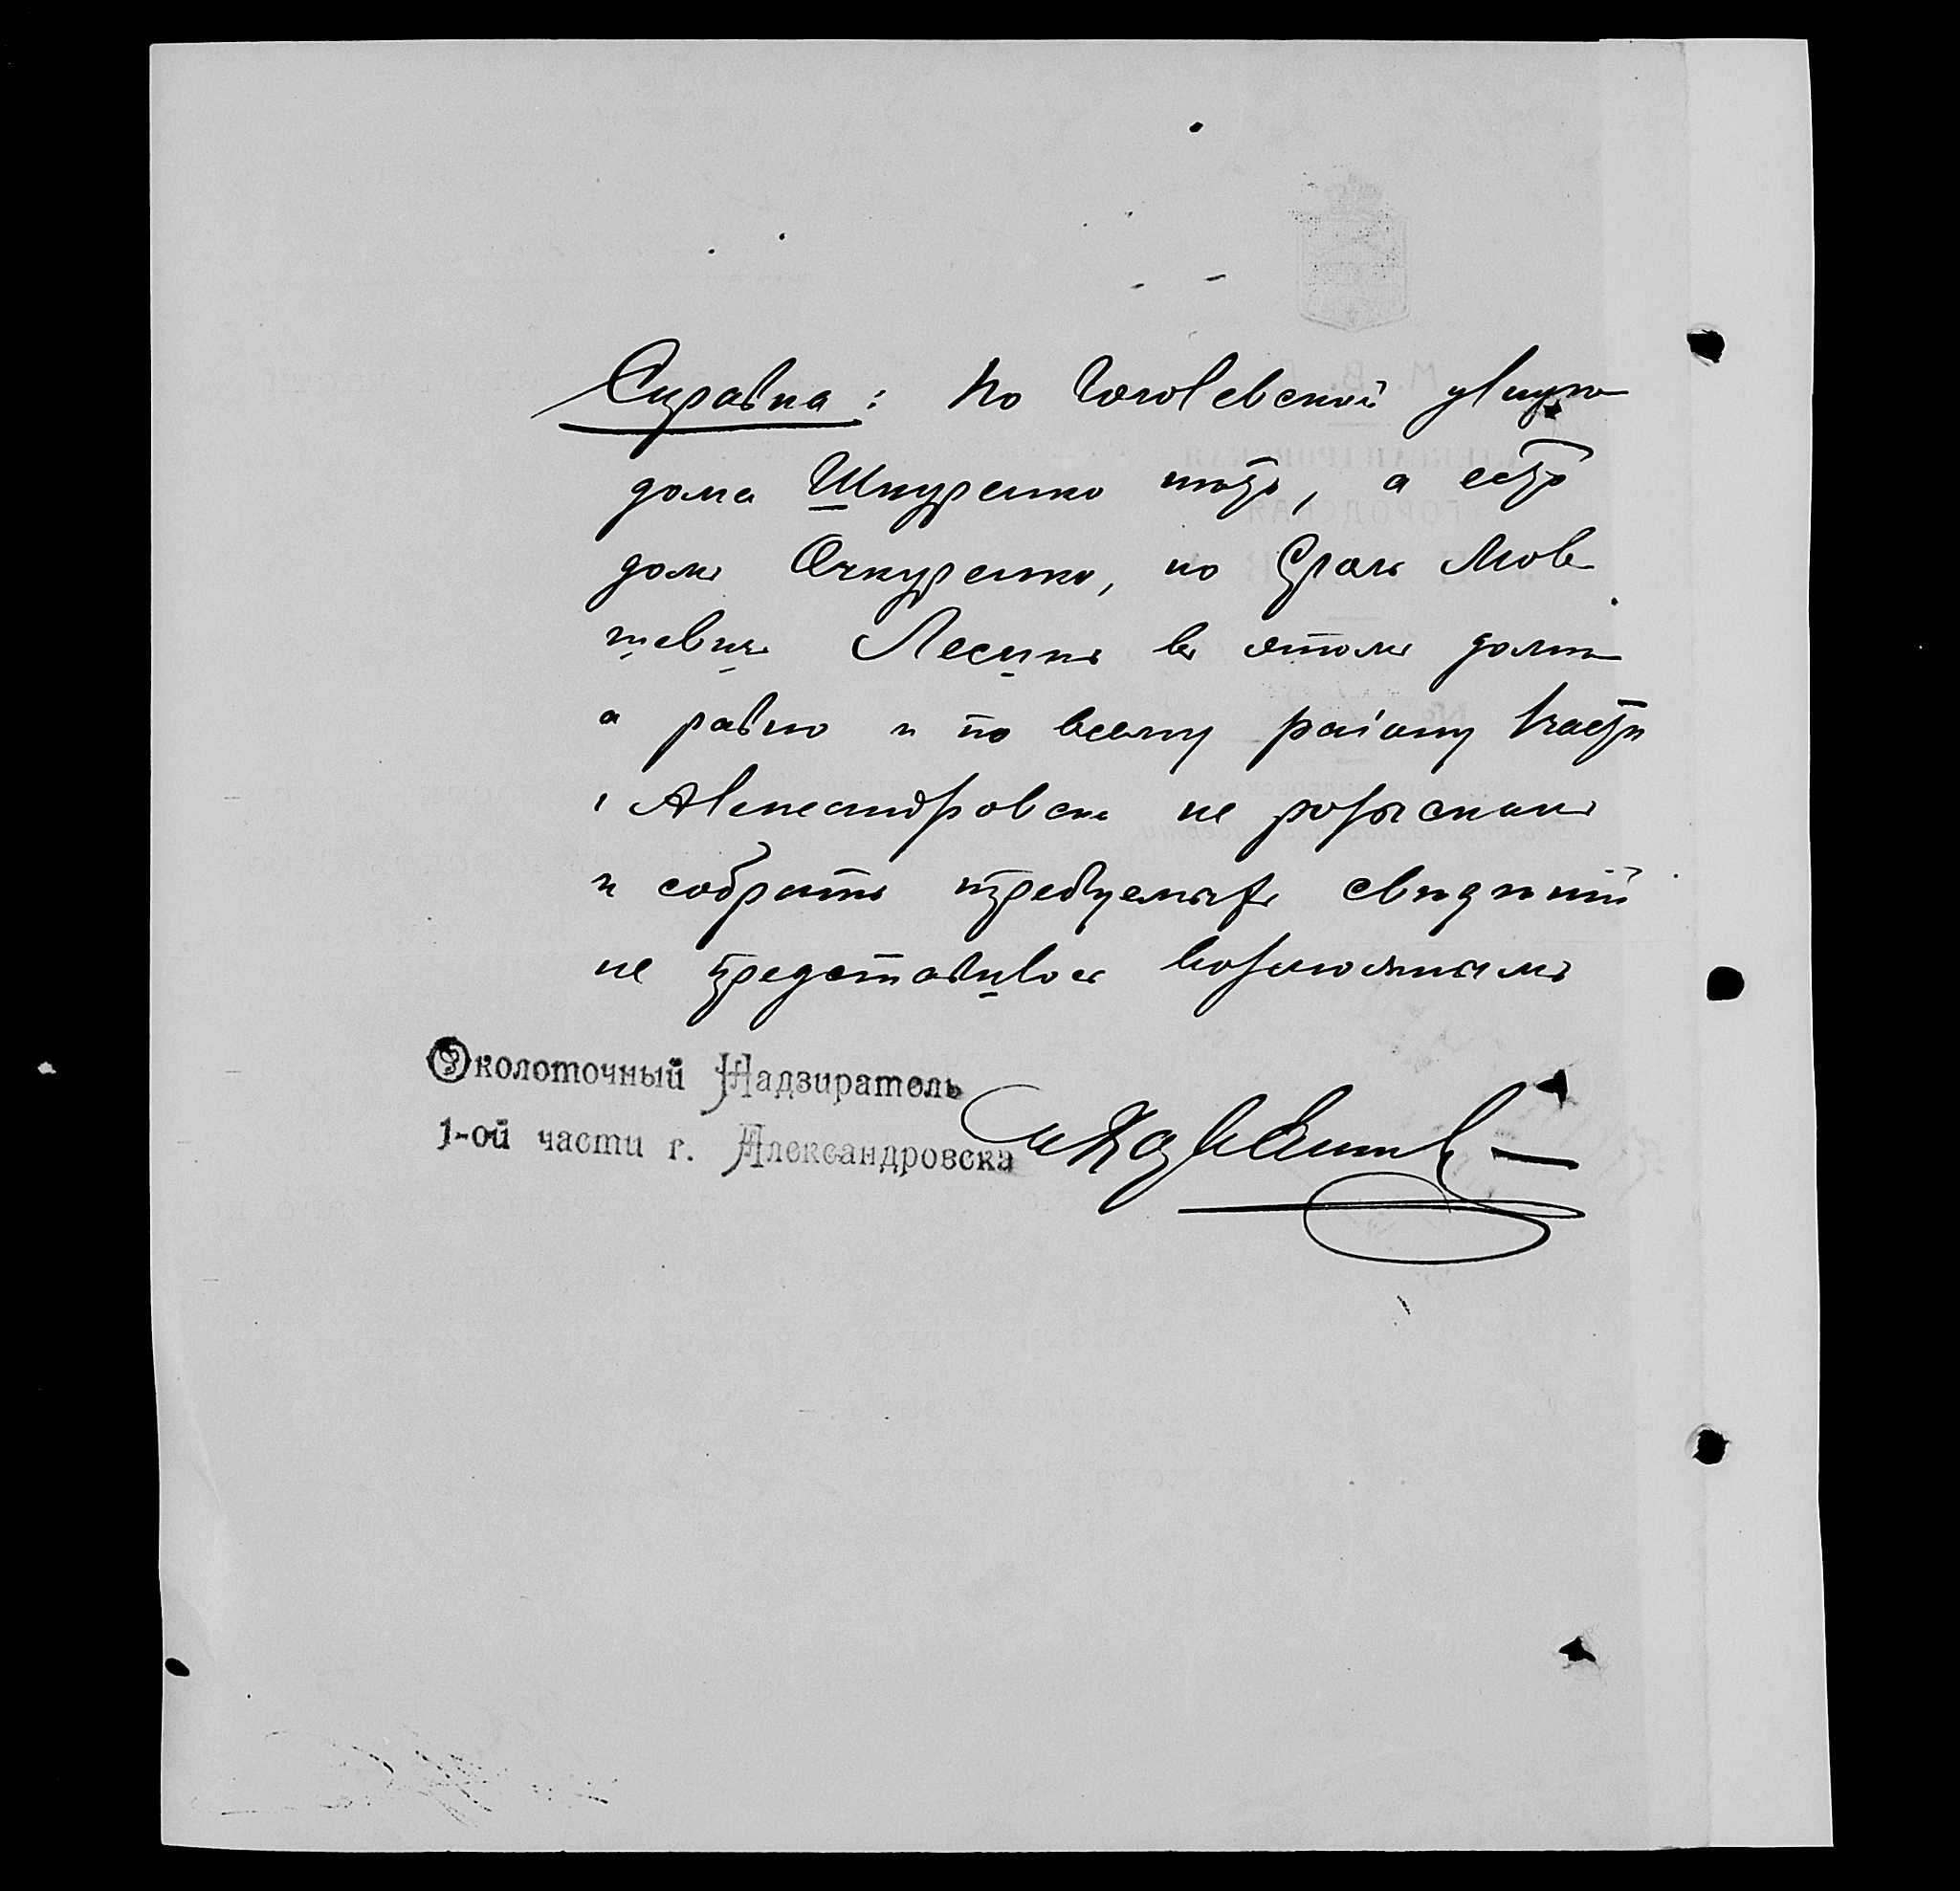 Справка: По Гоголевской улицѣ
дома Шкуренко нѣтъ, а есть
домъ Очкуренко, но Сроль Мов
шевичъ Лесинъ въ этомъ домѣ
а равно и по всему раіону 1 части
г Александровска не розысканъ
и собрать требуемыхъ свидѣній
не представилось возможнымъ
Околоточный Надзиратель
1-ой части г. Александровска